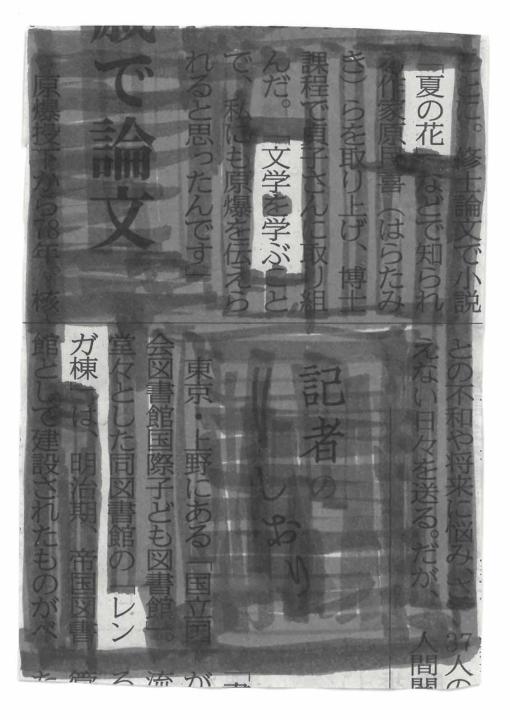 ここに。修士論文で小説
「夏の花」などで知られ
る作家原民喜(はらたみ
き)らを取り上げ、博士
課程で貞子さんに取り組
んだ。「文学を学ぶこと
で、私にも原爆を伝えら
れると思ったんです」
歳で論文
原爆投下から78年。核
との不和や将来に悩み、さ
えない日々を送る。だが、
記者の
しおり
東京・上野にある「国立国
会図書館国際子ども図書館」。
堂々とした同図書館の「レン
ガ棟」は、明治期、帝国図書
館として建設されたものがベ
37人の
人間関